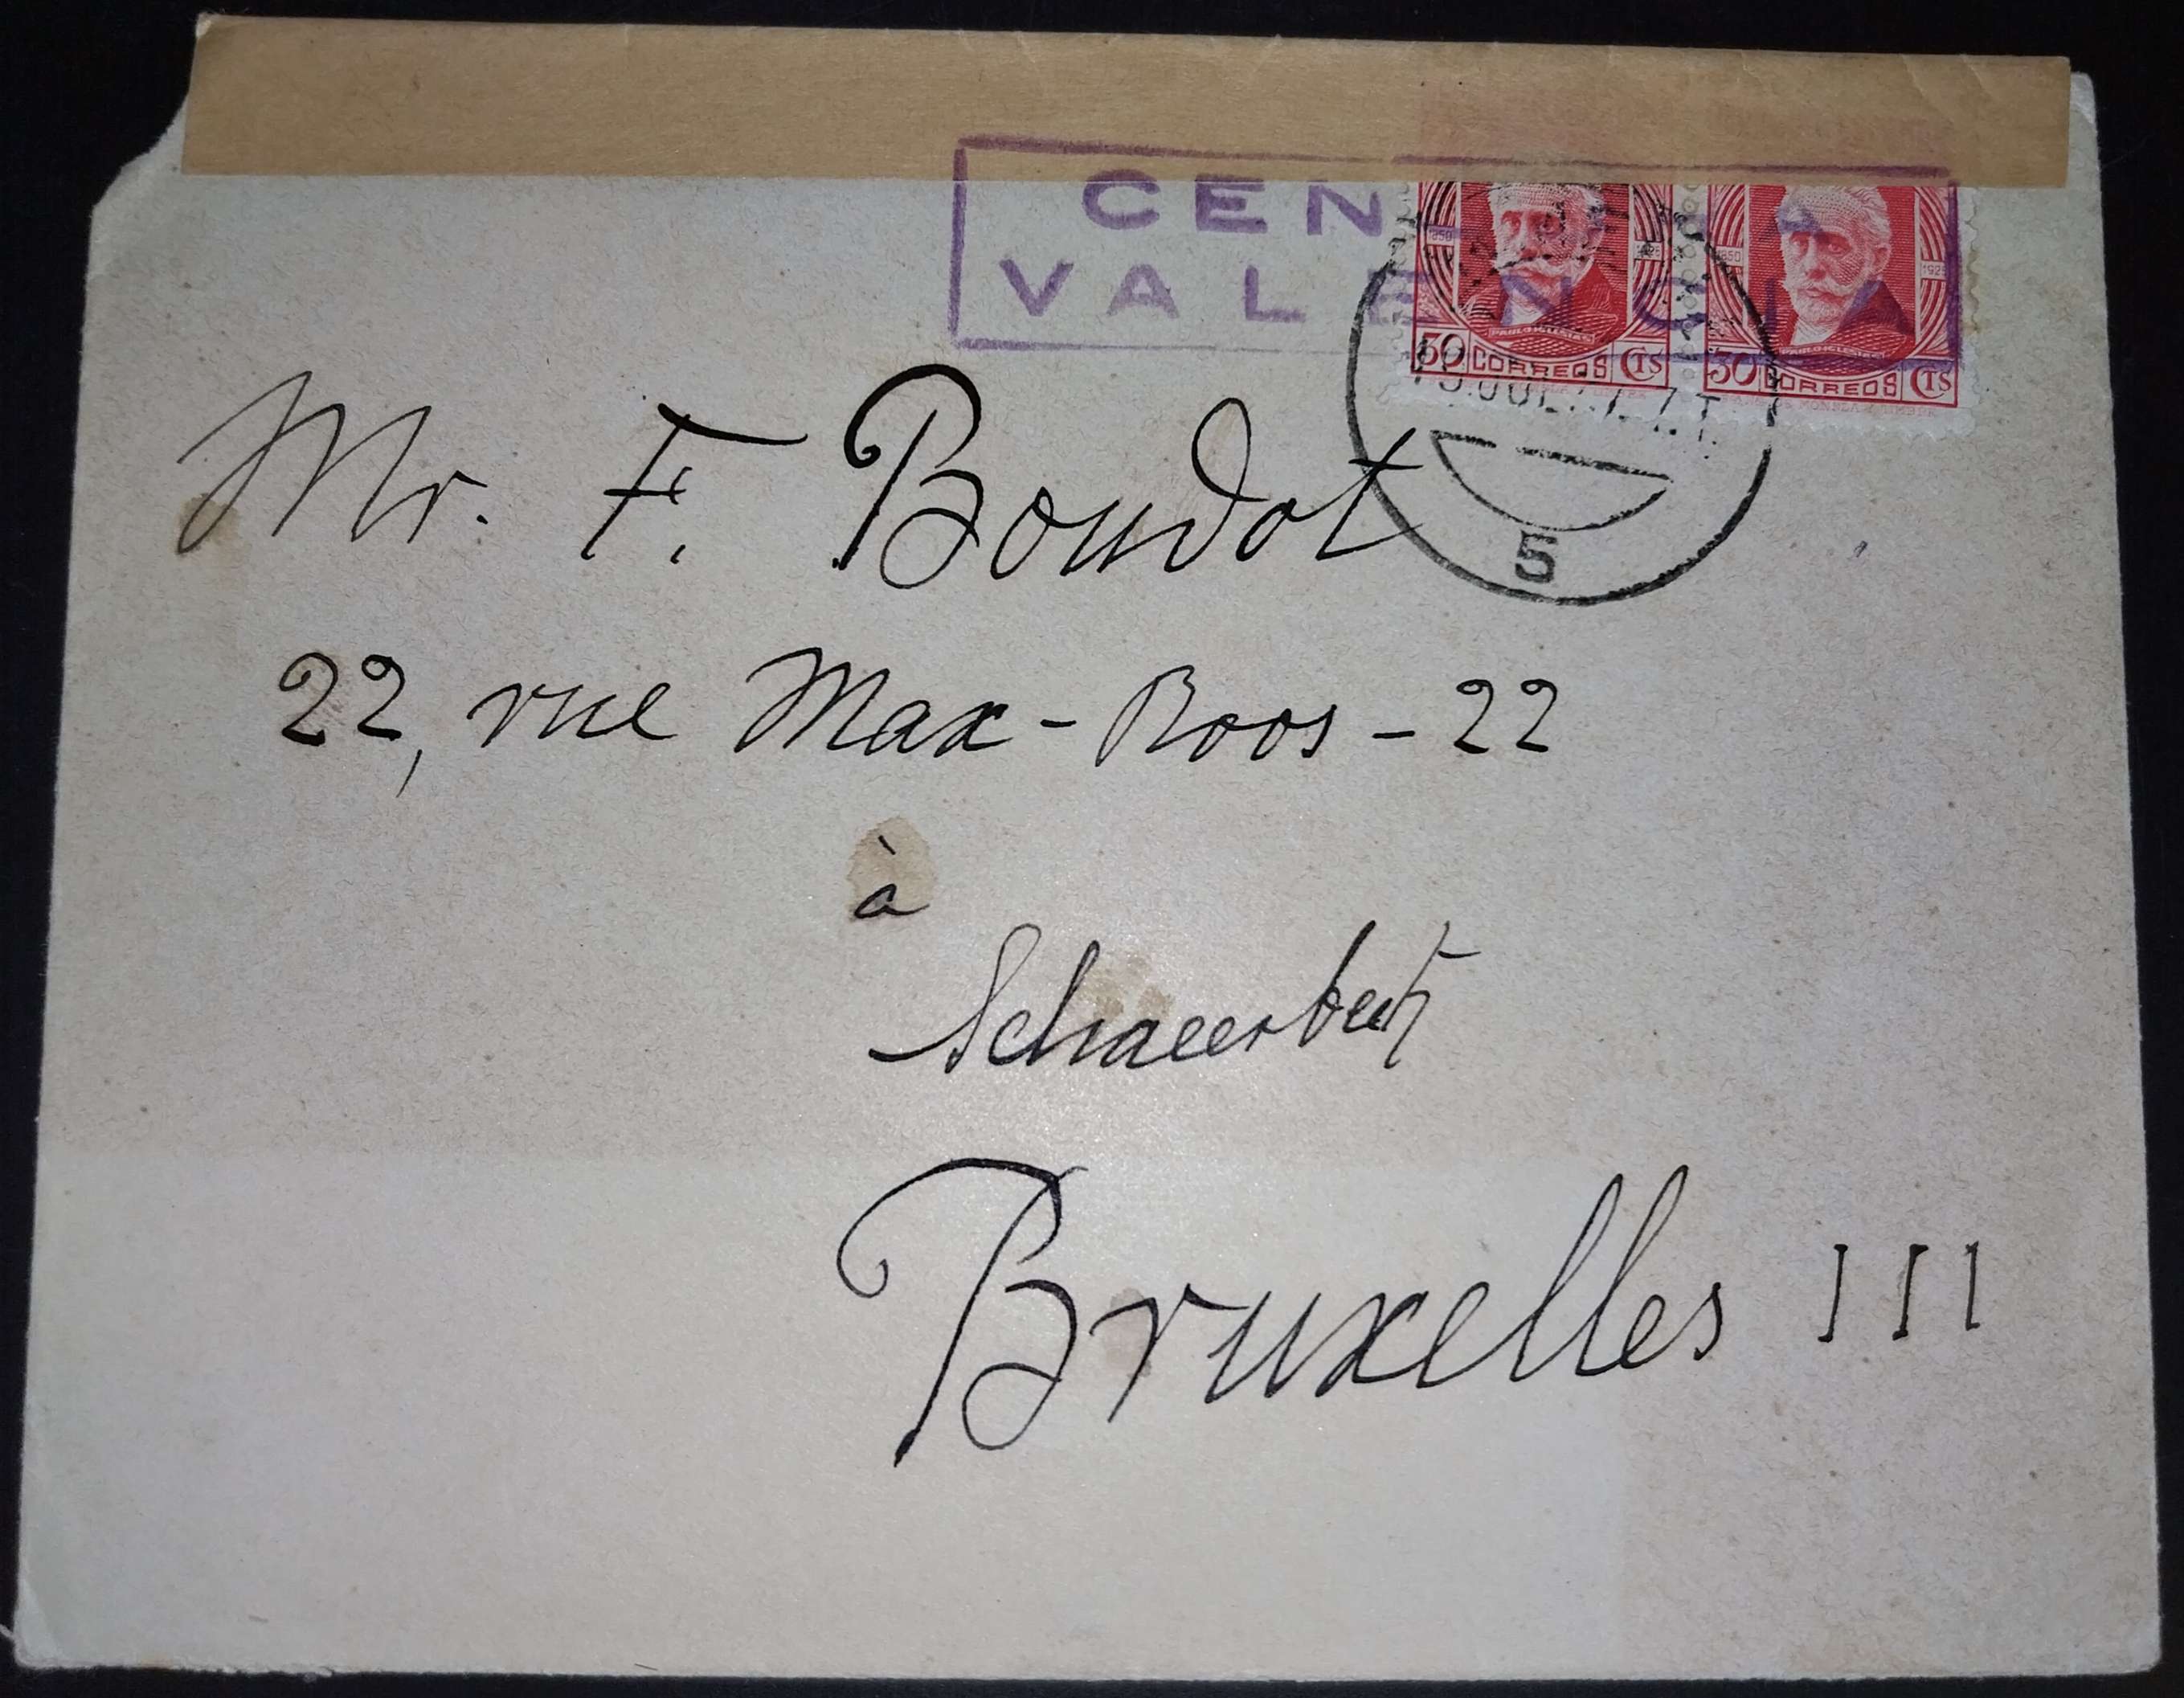 CEN
VALENCIA
1850
1850 1925
PABLO IGLESIAS
PABLO IGLESIAS
30 CORREOS CTS
30 CORREOS CTS
5
Mr. F. Boudot
22, rue Max-Roos-22
à
Schaeerbeek
Bruxelles III